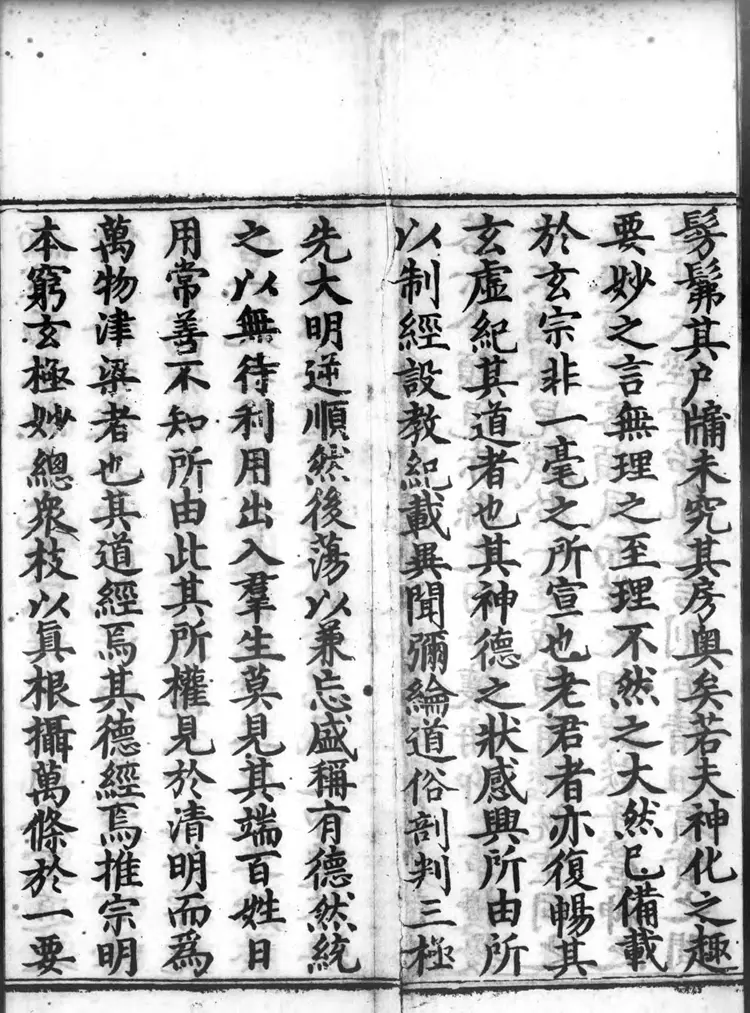 髣髴其戶牖未究其房奥矣若夫神化之趣
要妙之言無理之至理不然之大然已備載
於玄宗非一毫之所宣也老君者亦復暢其
玄虛紀其道者也其神德之狀感興所由所
以制經設教紀載異聞彌綸道俗剖判三極
先大明逆順然後蕩以兼忘盛稱有德然統
之以無待利用出入羣生莫見其端百姓日
用常善不知所由此其所權見於清明而爲
萬物津梁者也其道經焉其德經焉推宗明
本窮玄極妙總衆枝以眞根攝萬條於一要